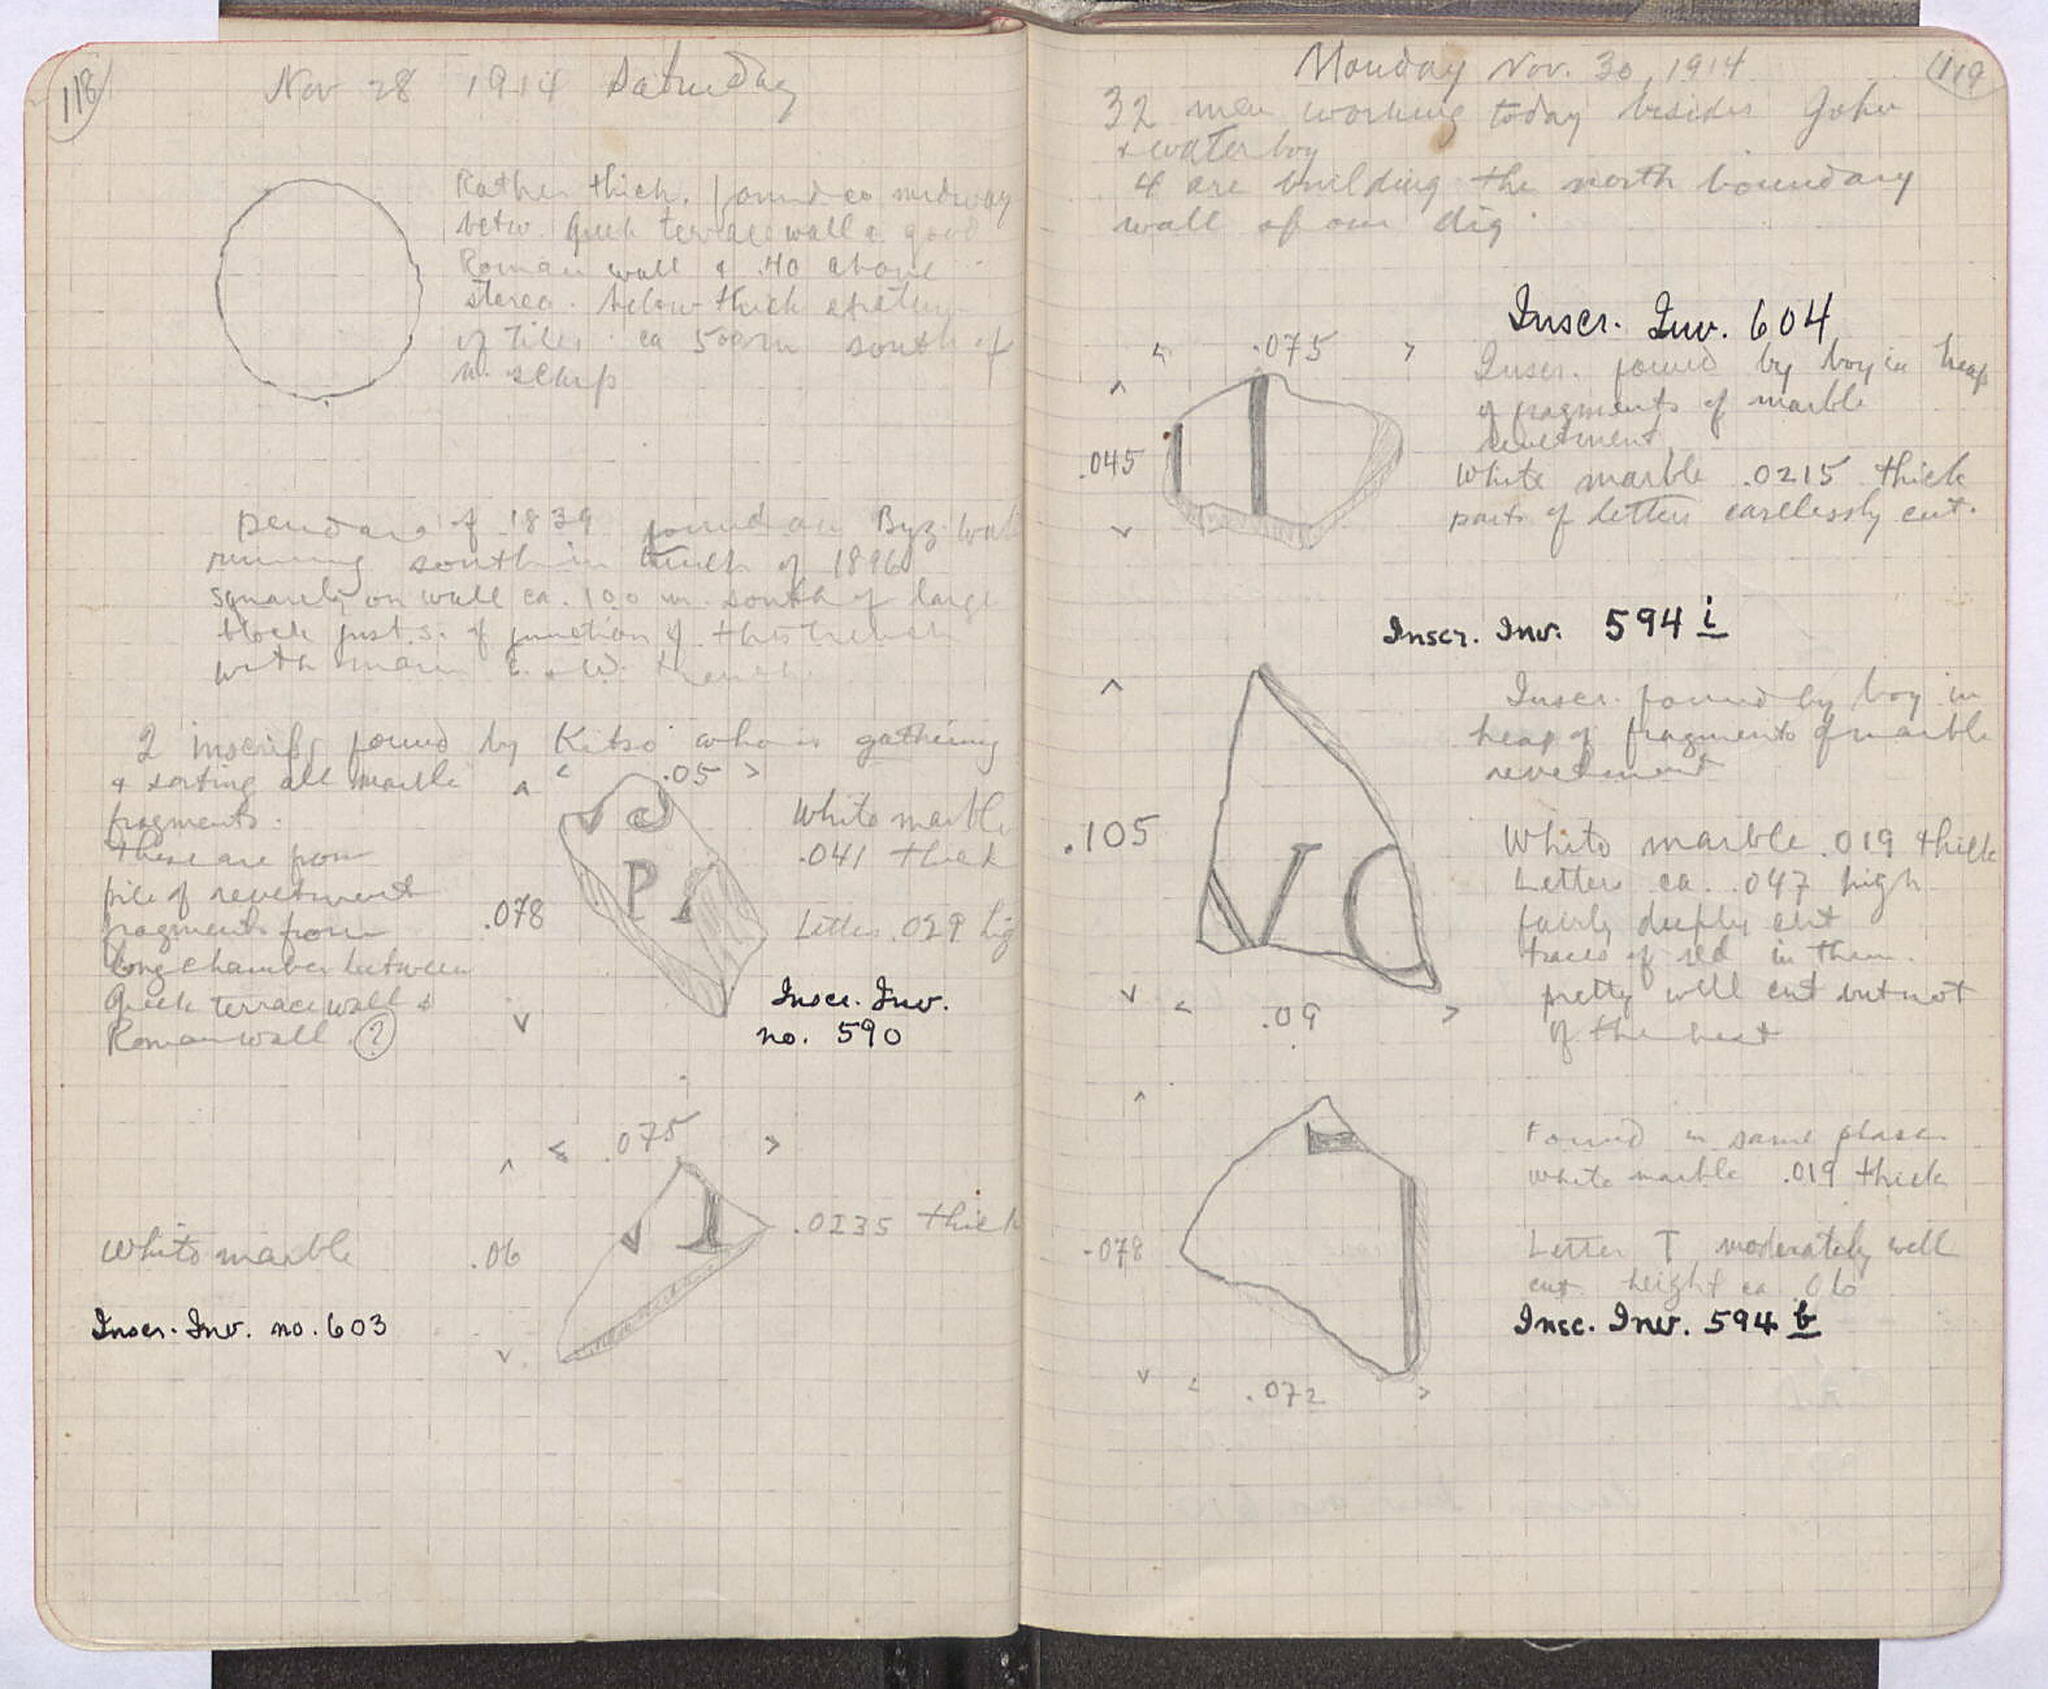 118
Nov 28 1914 Saturday
Rather thick. found ca midway
betw. Greek terrace wall & good
Roman wall & .40 above
stereo. below thick
of Tiles ca 5.00 m south of
n. scarp
of 1839 found on Byz. wall
running south in trench of 1896
squarely on wall ca. 1.00 m. south of large
block just s. of junction of this trench
with main E. & W. trench.
2 inscrips found by Kitso who is gathering
& sorting all marble
fragments.
These are from
pile of revetment
fragments from
long chamber between
Greek terrace wall &
Roman wall (?)
.05
.078
P
White marble
.041 thick
Letters .029 hig
Inscr. Inv.
no. 590
.075
.06
.0235 thick
White marble
Inscr. Inv. no. 603
119
Monday Nov. 30, 1914
32 men working today besides John
& water boy
4 are building the north boundary
wall of our dig.
Inscr. Inv. 604
.075
.045
Inscr. found by boy in heap
of fragments of marble
revetment
White marble .0215 thick
parts of letters carelessly cut.
Inscr. Inv. 594 i
.105
V C
.09
Inscr. found by boy in
heap of fragments of marble
revetment
White marble .019 thick
Letters ca. .047 high
fairly deeply cut
traces of red in them.
pretty well cut but not
of the best
.078
.072
Found in same place
White marble .019 thick
Letter T moderately well
cut height ca .06
Insc. Inv. 594 b